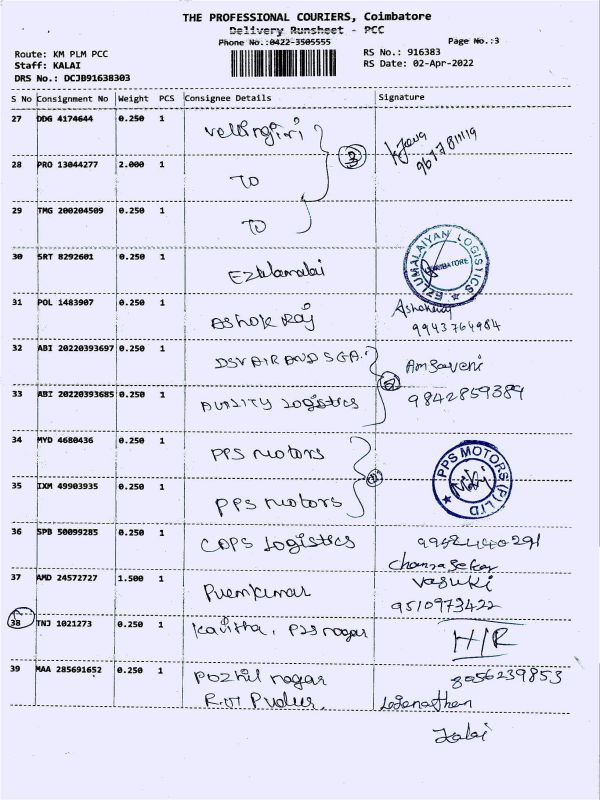 THE PROFESSIONAL COURIERS, Coimbatore
Delivery Runsheet - PCC
Phone No.:0422-3505555
Page No.:3
Route: KM PLM PCC
RS No.: 916383
Staff: KALAI
RS Date: 02-Apr-2022
DRS No.: DCJB91638303
S No Consignment No Weight PCS Consignee Details Signature
27 DDG 4174644 0.250 1 Vellingiri
28 PRO 13044277 2.000 1 TO
3
29 TMG 200204509 0.250 1 TO
30 SRT 8292601 0.250 1 Ezhlamalai
EZLUMALAIYAN LOGISTICS COIMBATORE
31 POL 1483907 0.250 1 Ashok Raj
9943764984
32 ABI 20220393697 0.250 1 DSV AIR AND SEA.
33 ABI 20220393685 0.250 1 Logistics
9842859389
34 MYD 4680436 0.250 1 PPS Motors
35 IXM 49903935 0.250 1 PPS Motors
PPS MOTORS (P) LTD
36 SPB 50099285 0.250 1 Logistics
37 AMD 24572727 1.500 1 Premkumar
Vasuki
9510973422
38 TNJ 1021273 0.250 1 Kavitha, nagar
H/R
39 MAA 285691652 0.250 1 Pozhil nagar
8056239853
Kalai